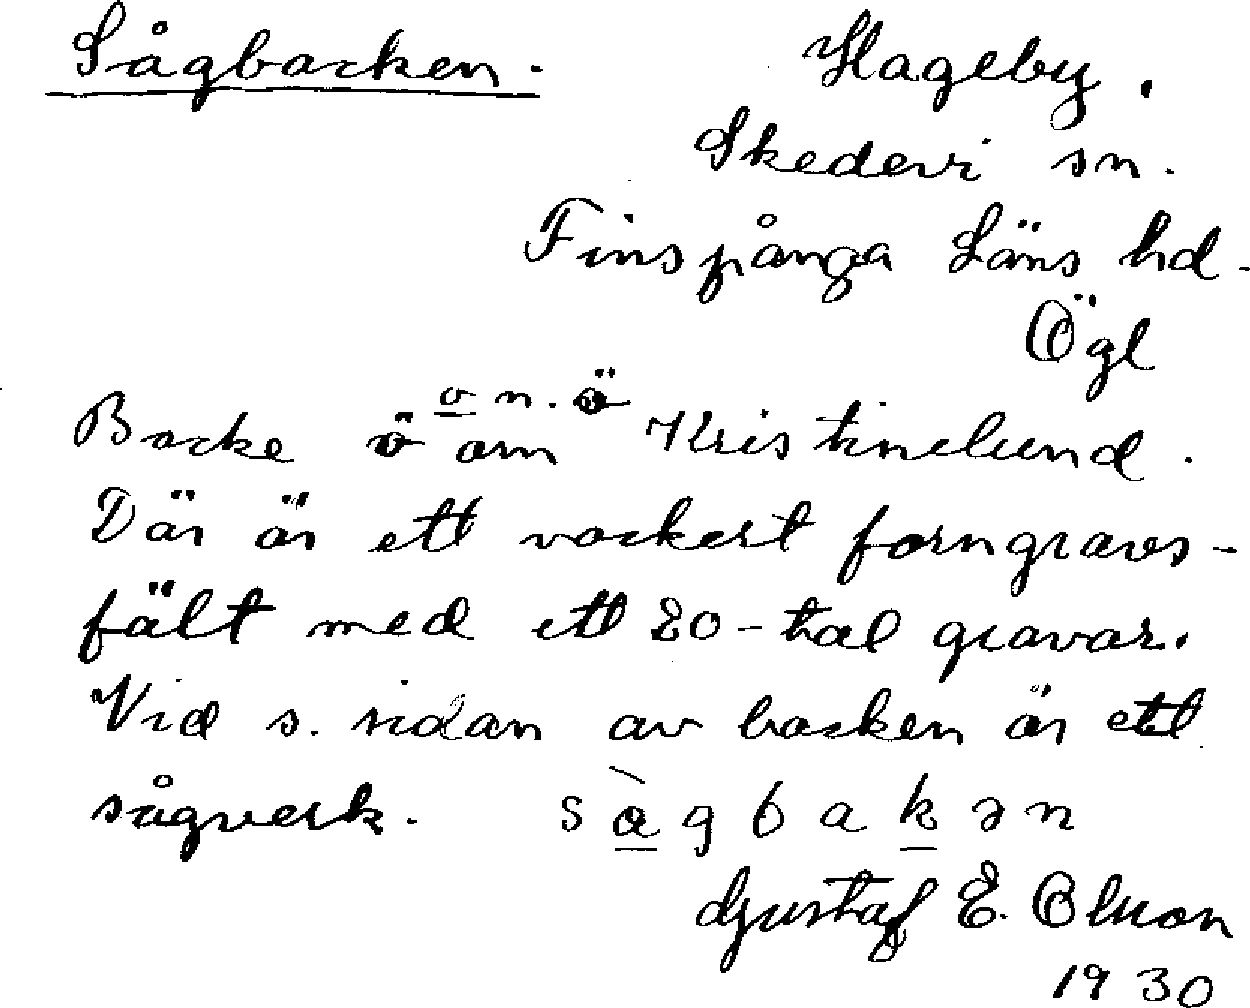 Sågbacken.
Hageby.
Skedevi sn.
Finspånga Läns hd.
Ögl
Backe ö o n. ö om Kristinelund.
Där är ett vackert forngravs-
fält med ett 20-tal gravar.
Vid s. sidan av backen är ett
sågverk. sàgbakən
Gustaf E. Olsson
1930